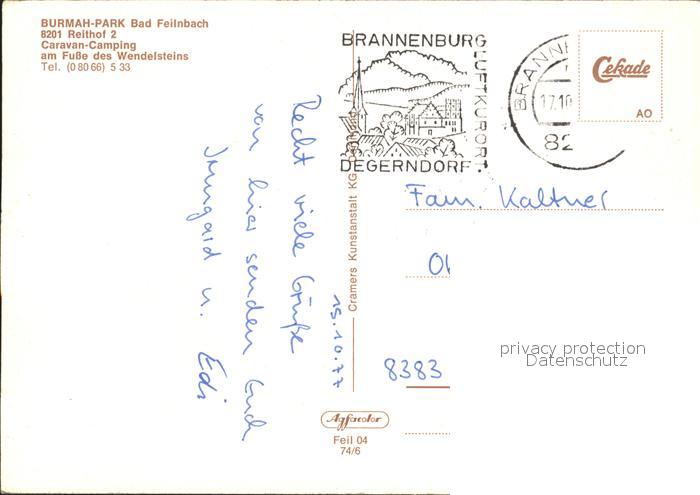 BURMAH-PARK Bad Feilnbach
8201 Reithof 2
Caravan-Camping
am Fuße des Wendelsteins
Tel. (0 80 66) 5 33
BRANNENBURG
LUFTKURORT
DEGERNDORF.
17.10
82
Cekade
AO
15.10.77
Recht viele Grüße
von hier senden Euch
Irmgard u. Edi
Cramers Kunstanstalt KG
Fam. Kaltner
8383
privacy protection
Datenschutz
Agfacolor
Feil 04
74/6